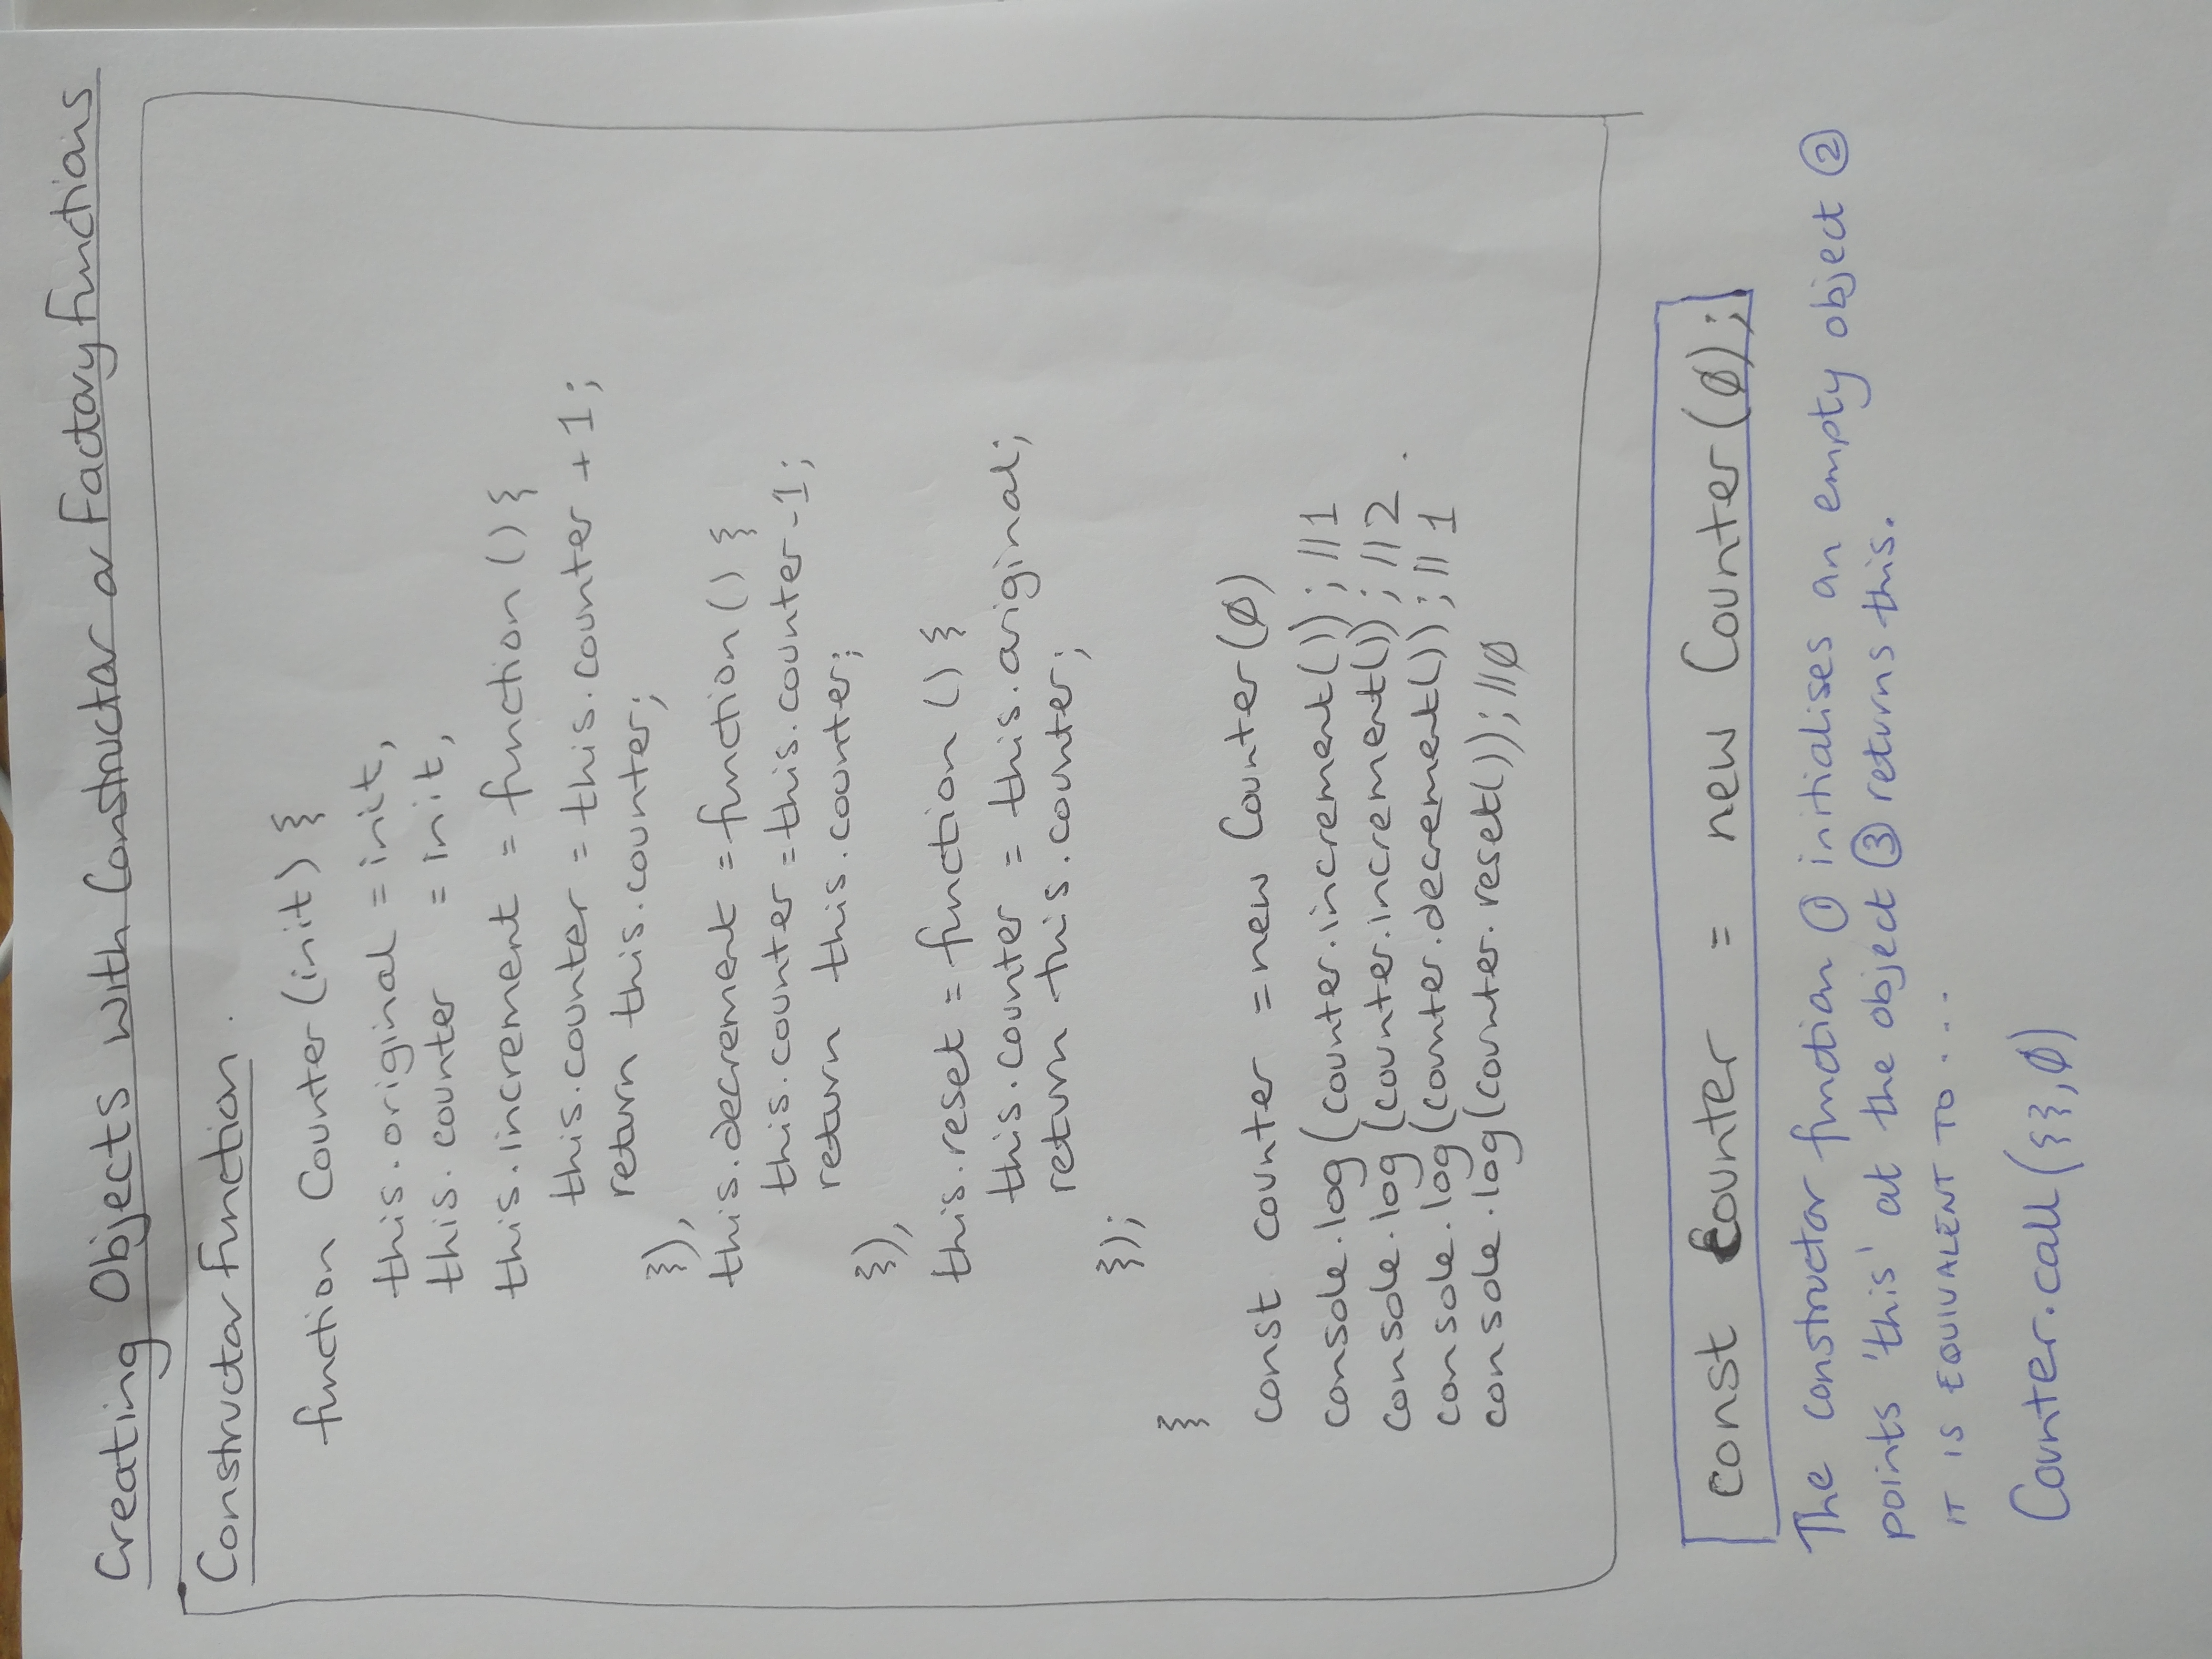 Creating Objects with Constructor or Factory Functions
Constructor Function.
function Counter (init) {
this.original = init,
this.counter = init,
this.increment = function () {
this.counter = this.counter + 1;
return this.counter;
}),
this.decrement = function () {
this.counter = this.counter - 1;
return this.counter;
}),
this.reset = function () {
this.counter = this.original;
return this.counter;
});
}
const counter = new Counter (0)
console.log (counter.increment()); //1
console.log (counter.increment()); //2.
console.log (counter.decrement()); //1
console.log (counter.reset()); //0
const counter = new Counter (0);
The constructor function ① initialises an empty object ②
points 'this' at the object ③ returns this.
IT IS EQUIVALENT TO...
Counter.call ({},0)